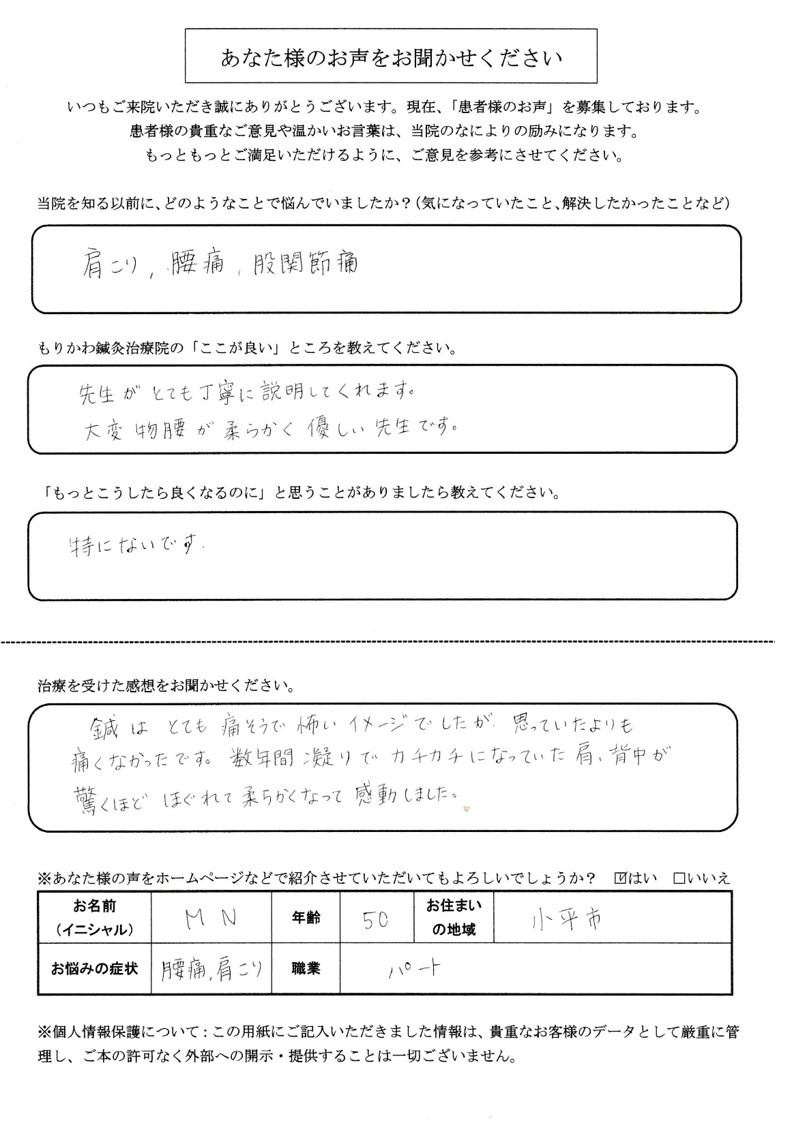 あなた様のお声をお聞かせください
いつもご来院いただき誠にありがとうございます。現在、「患者様のお声」を募集しております。
患者様の貴重なご意見や温かいお言葉は、当院のなによりの励みになります。
もっともっとご満足いただけるように、ご意見を参考にさせてください。
当院を知る以前に、どのようなことで悩んでいましたか？（気になっていたこと、解決したかったことなど）
肩こり, 腰痛, 股関節痛
もりかわ鍼灸治療院の「ここが良い」ところを教えてください。
先生がとても丁寧に説明してくれます。
大変物腰が柔らかく優しい先生です。
「もっとこうしたら良くなるのに」と思うことがありましたら教えてください。
特にないです.
治療を受けた感想をお聞かせください。
鍼はとても痛そうで怖いイメージでしたが、思っていたよりも
痛くなかったです。数年間凝りでカチカチになっていた肩、背中が
驚くほどほぐれて柔らかくなって感動しました。
※あなた様の声をホームページなどで紹介させていただいてもよろしいでしょうか？ ☑はい □いいえ
お名前（イニシャル） M N 年齢 50 お住まいの地域 小平市
お悩みの症状 腰痛,肩こり 職業 パート
※個人情報保護について：この用紙にご記入いただきました情報は、貴重なお客様のデータとして厳重に管
理し、ご本の許可なく外部への開示・提供することは一切ございません。